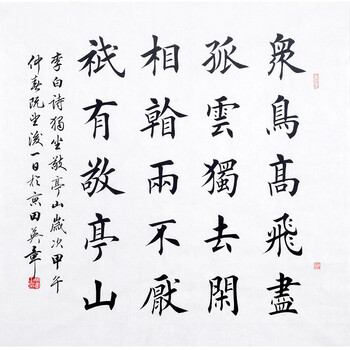 衆鳥髙飛盡
孤雲獨去閑
相看兩不厭
祇有敬亭山
李白詩獨坐敬亭山歲次甲午
仲春既望後一日於京田英章